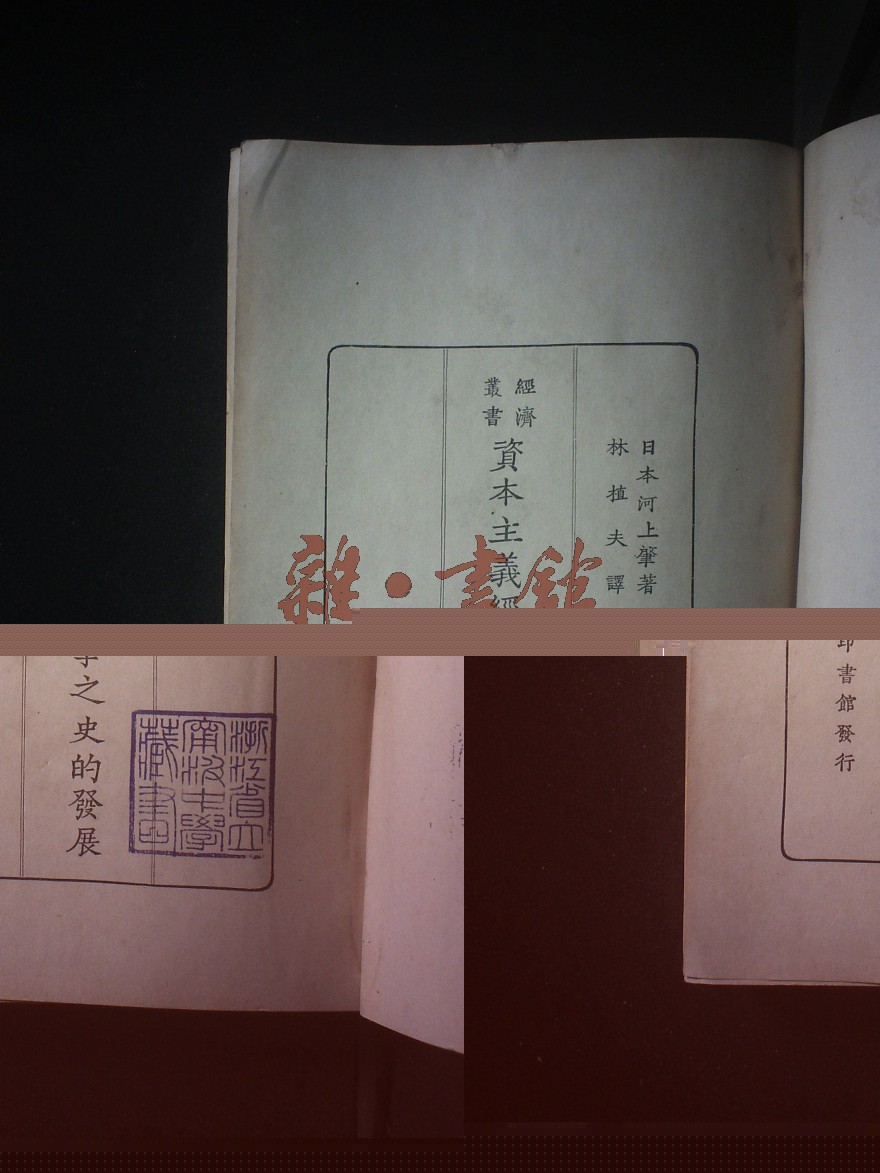 日本河上肇著
林植夫譯
經濟
叢書
資本主義經
雜·書館
之史的發展
浙江省立
甯波中學
藏書
書館發行